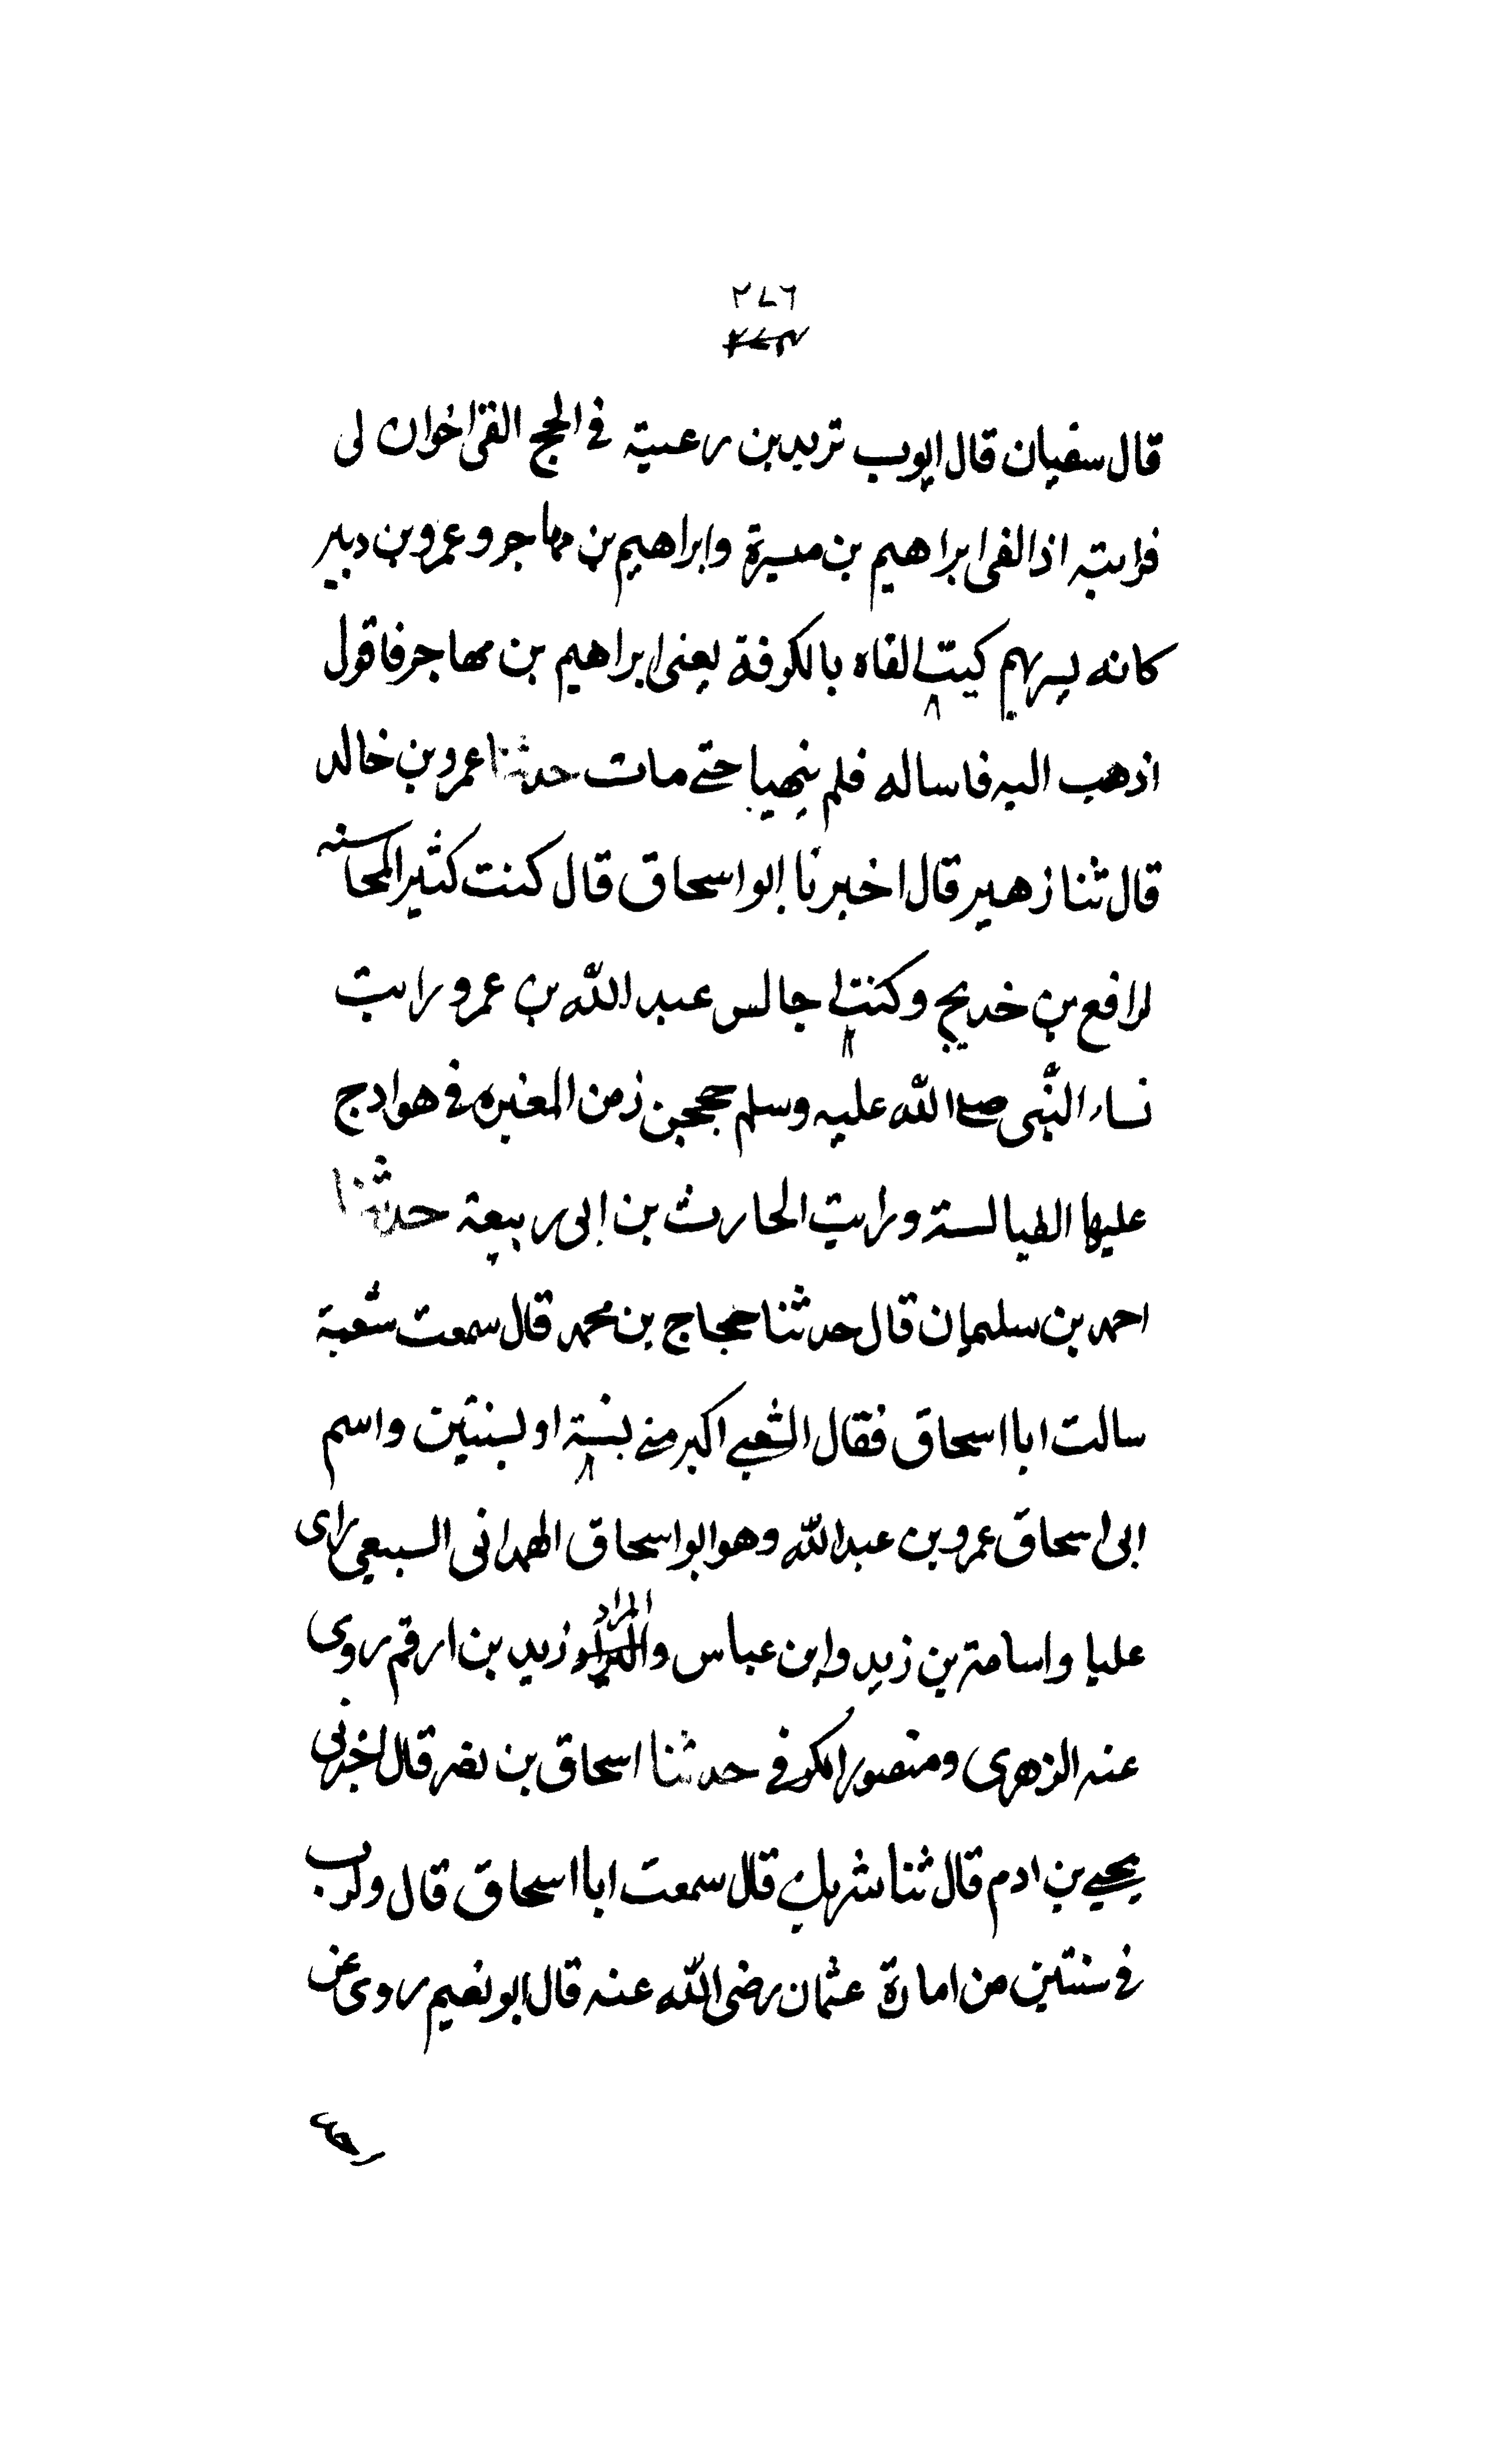 ٢٧٦
قال سفيان قال ايوب تريد بن رعىية في الحج القى اخوان لى
فرايته اذا لقى ابراهيم بن ميسرة وابراهيم بن مهاجر وعمرو بن دير
كانه يسهم كيت القاه بالكوفة يعنى ابراهيم بن مهاجر فاقول
اذهب اليه فاساله فلم حتى مات حدثنا عمرو بن خالد
قال ثنا زهير قال اخبرنا ابو اسحاق قال كنت كثير المجالسة
لرافع بن خديج وكنت اجالس عبد الله بن عمر ورايت
نساء النبى صلى الله عليه وسلم حججن زمن المغيره في هوادج
عليها الطيالسة ورايت الحارث بن ابى ربيعة حدثنا
احمد بن سليمان قال حدثنا حجاج بن محمد قال سمعت شعبة
سالت ابا اسحاق فقال الشعبي اكبر مني بسنة او بسنتين واسم
ابى اسحاق عمرو بن عبد الله وهو ابو اسحاق الهمدانى السبيعي راى
عليا واسامة بن زيد وابن عباس والبراء وزيد بن ارقم روى
عنه الزهرى ومنصور الكوفي حدثنا اسحاق بن نصر قال اخبرنى
يحيى بن ادم قال ثنا شريك قال سمعت ابا اسحاق قال ولدت
في سنتين من امارة عثمان رضى الله عنه قال ابو نعيم روى عن